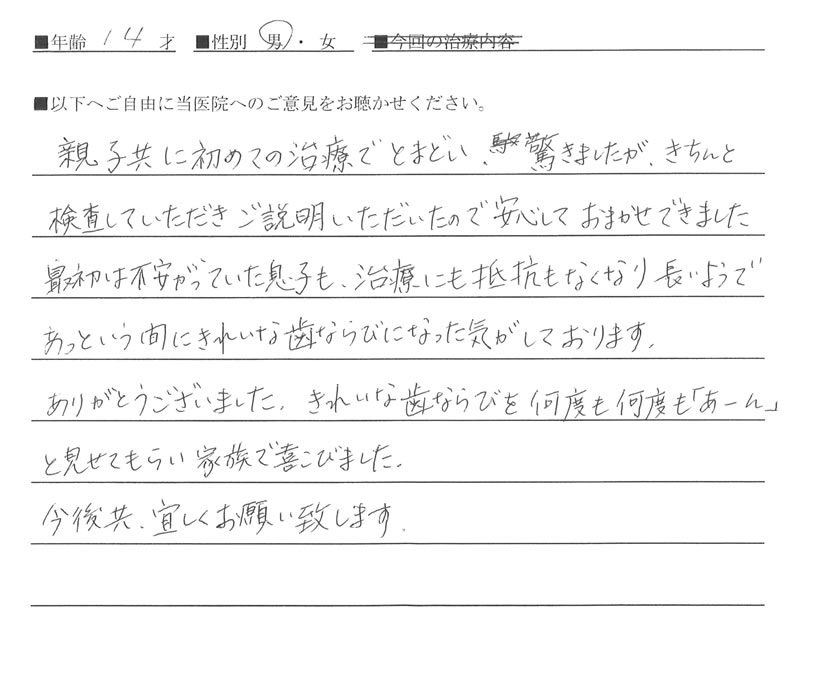 ■年齢 14 才 ■性別 男・女 ■今回の治療内容
■以下へご自由に当医院へのご意見をお聴かせください。
親子共に初めての治療でとまどい、驚きましたが、きちんと
検査していただきご説明いただいたので安心しておまかせできました
最初は不安がっていた息子も、治療にも抵抗もなくなり長いようで
あっという間にきれいな歯ならびになった気がしております。
ありがとうございました。きれいな歯ならびを何度も何度も「あーん」
と見せてもらい家族で喜こびました。
今後共、宜しくお願い致します。